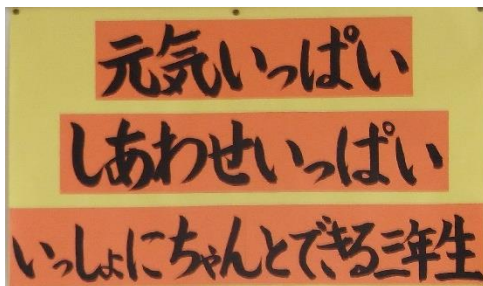 元気いっぱい
しあわせいっぱい
いっしょにちゃんとできる三年生